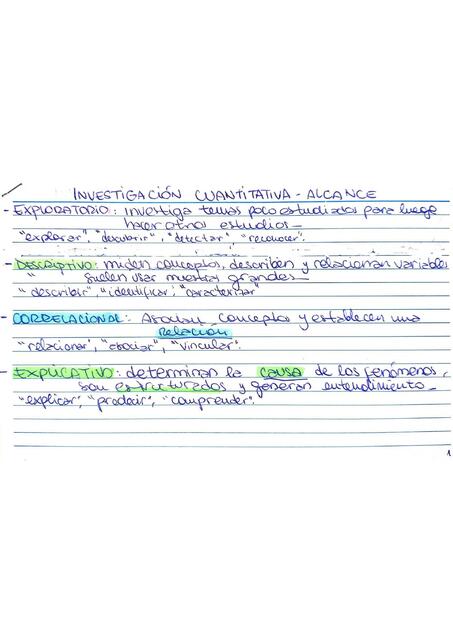 INVESTIGACIÓN CUANTITATIVA - ALCANCE
- EXPLORATORIO: Investiga temas poco estudiados para luego
hacer otros estudios -
"explorar", "descubrir", "detectar", "reconocer".
- DESCRIPTIVO: miden conceptos, describen y relacionan variables
" suelen usar muestras grandes -
"describir", "identificar", "caracterizar"
- CORRELACIONAL: Asocian conceptos y establecen una
RELACIÓN
"relacionar", "asociar", "vincular".
- EXPLICATIVO: determinan la CAUSA de los fenómenos,
son estructurados y generan entendimiento -
"explicar", "predecir", "comprender".
1